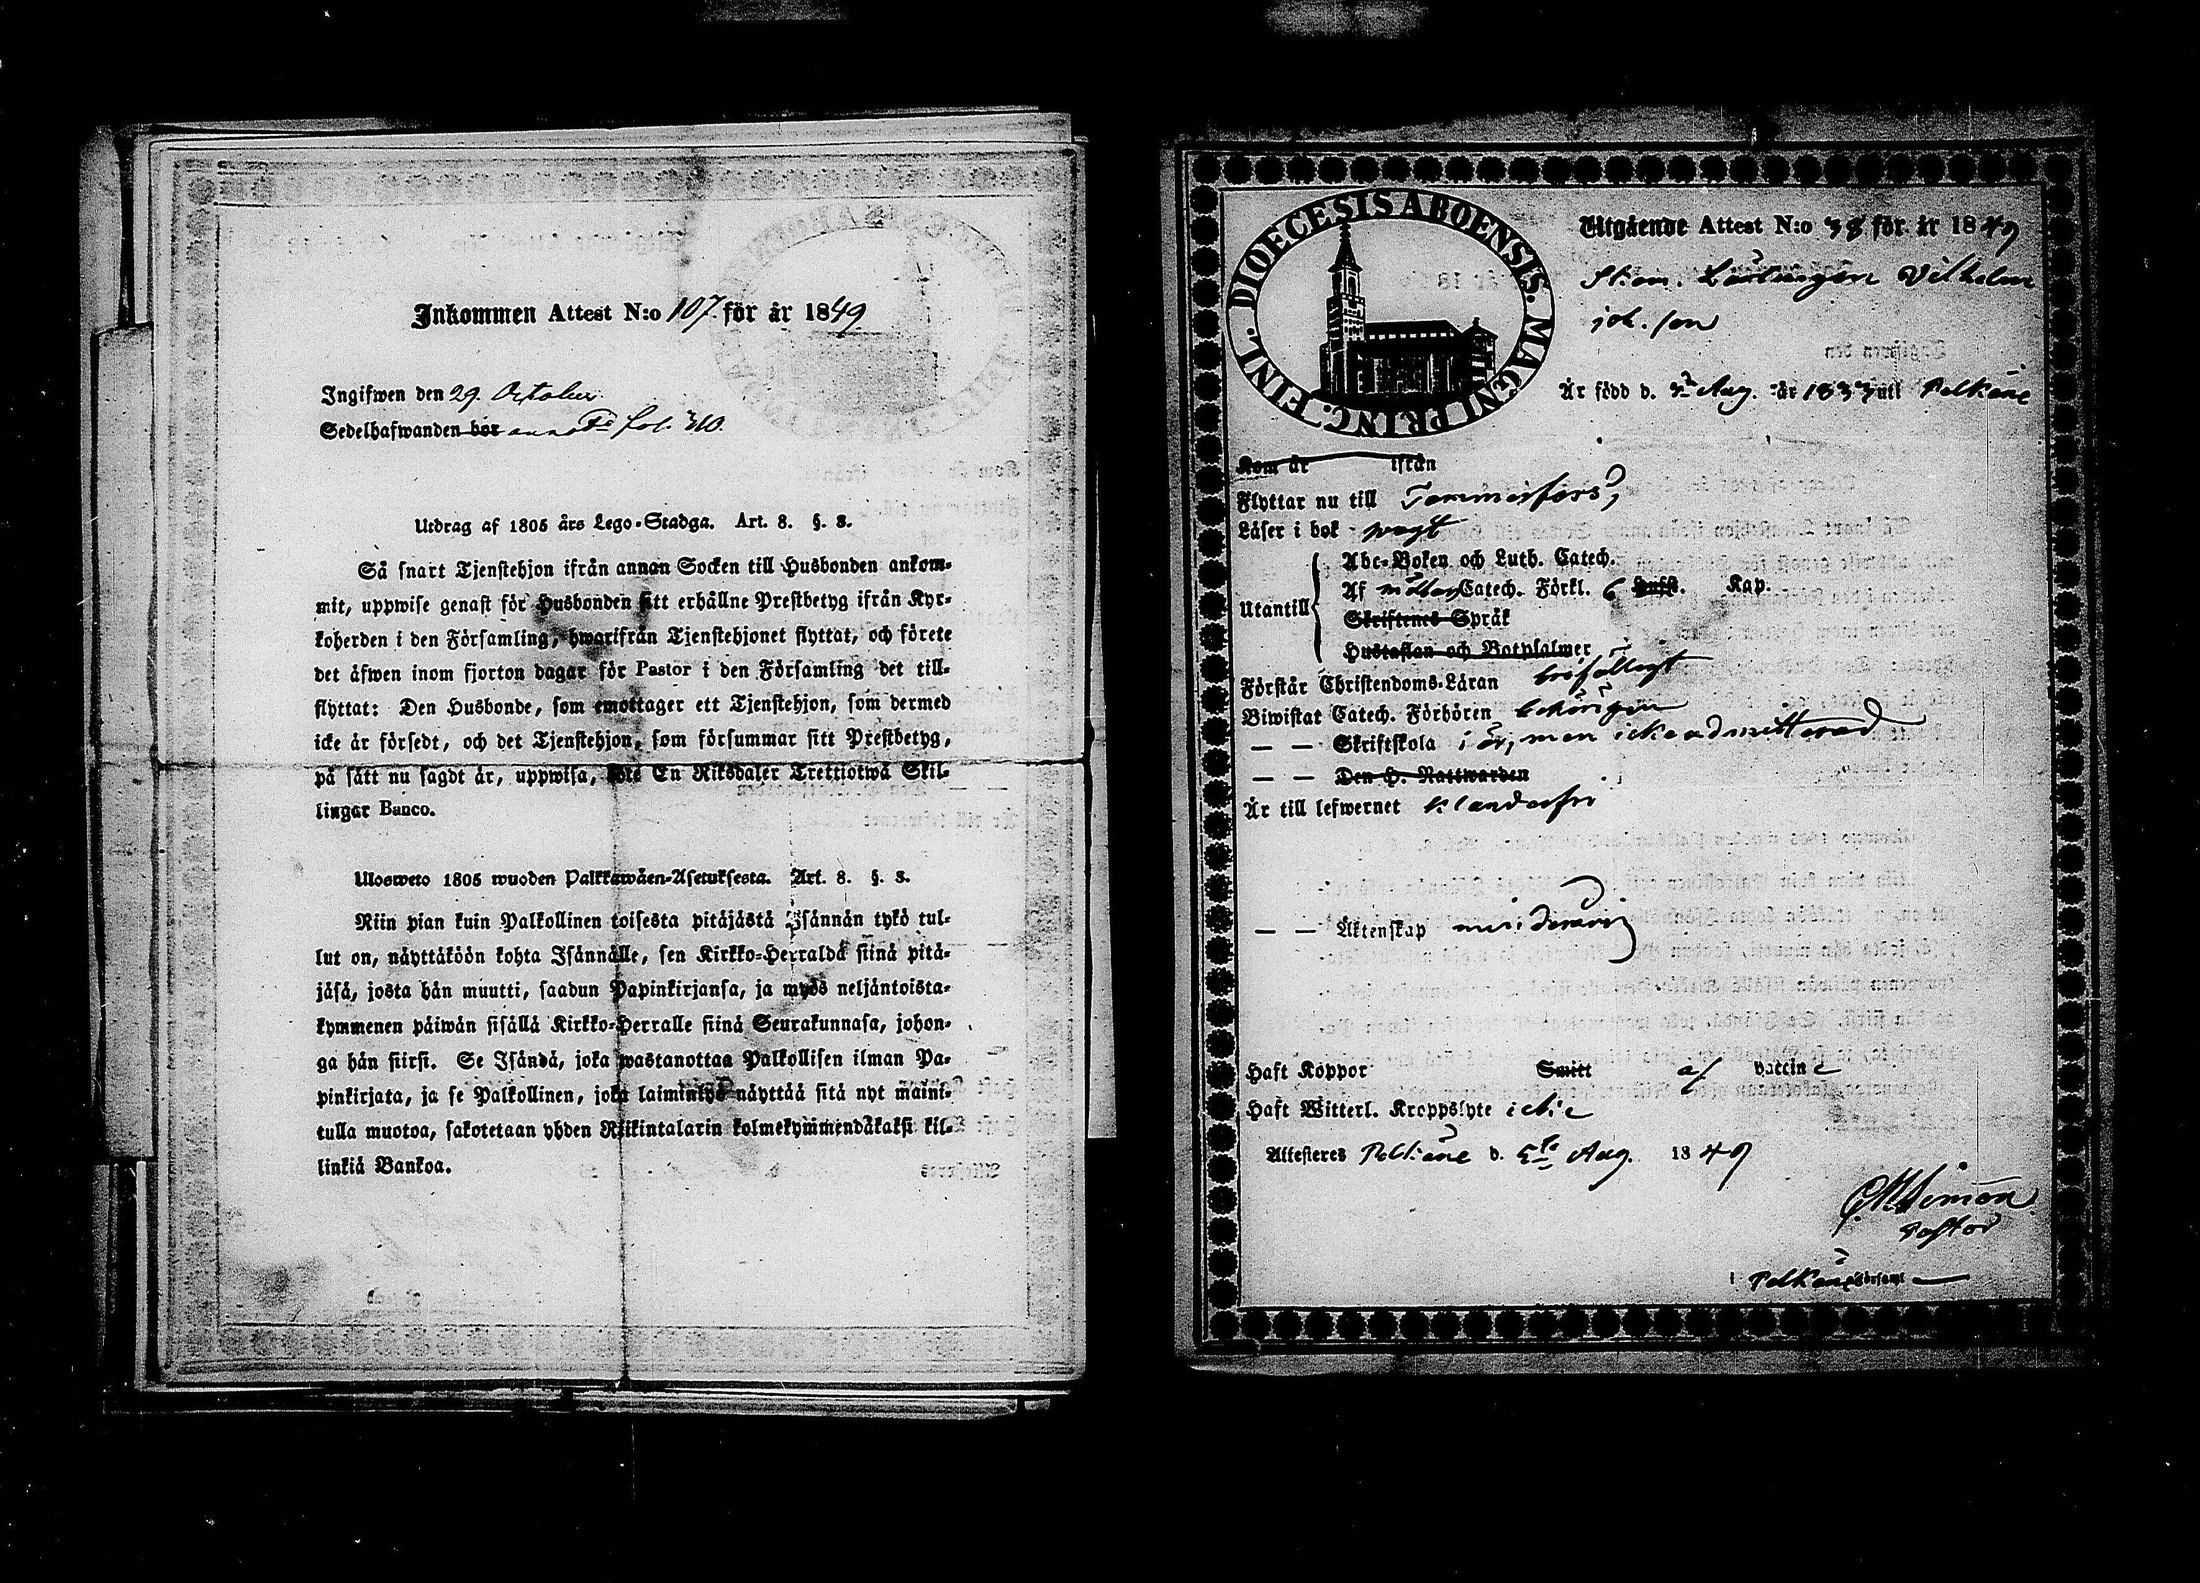 Inkommen Attest N:o 107. för år 1849
Ingifwen den 29. October.
Sedelhafwanden bor fol. 310.
Utdrag af 1805 års Lego-Stadga. Art. 8. §. 8.
Så snart Tjenstehjon ifrån annan Socken till Husbonden ankom-
mit, uppwise genast för Husbonden sitt erhållne Prestbetyg ifrån Kyr-
koherden i den Församling, hwarifrån Tjenstehjonet flyttat, och förete
det äfwen inom fjorton dagar för Pastor i den Församling det till-
flyttat: Den Husbonde, som emottager ett Tjenstehjon, som dermed
icke är försedt, och det Tjenstehjon, som försummar sitt Prestbetyg,
på sätt nu sagdt är, uppwisa, böte En Riksdaler Trettiotwå Skil-
lingar Banco.
Ulosweto 1805 wuoden Palkkawäen-Asetuksesta. Art. 8. §. 8.
Niin pian kuin Palkollinen toisesta pitäjästä Isännän tykö tul-
lut on, näyttäköön kohta Isännälle, sen Kirkko-Herralda siinä pitä-
jäsä, josta hän muutti, saadun Papinkirjansa, ja myös neljäntoista-
kymmenen päiwän sisällä Kirkko-Herralle siinä Seurakunnasa, johon-
ga hän siirsi. Se Isändä, joka wastanottaa Palkollisen ilman Pa-
pinkirjata, ja se Palkollinen, joka laiminlyö näyttää sitä nyt maini-
tulla muotoa, sakotetaan yhden Riikintalarin kolmekymmendäkaksi kil-
linkiä Bankoa.
DIOECESIS ABOENSIS. MAGNI PRINC. FINL.
Utgående Attest N:o 38 för år 1849
Skom. Lärlingen Vilhelm
Joh. son
Är född d. Aug. år 1833 uti Pelkäne
Kom år ifrån
Flyttar nu till Tammerfors,
Läser i bok
Utantill
Abc-Boken och Luth. Catech.
Af Catech. Förkl. 6 Kap.
Skriftenes Språk
Hustaflan och Botpsalmer
Förstår Christendoms-Läran
Biwistat Catech. Förhören behörigen
— — Skriftskola i år, men icke admitterad
— — Den H. Nattwarden
Är till lefwernet klanderfri
— — Äktenskap
Haft Koppor Smitt af vaccine
Haft Witterl. Kroppslyte icke
Attesteres Pelkäne d. 5te Aug. 1849
Pastor
i Pelkäne Församl.